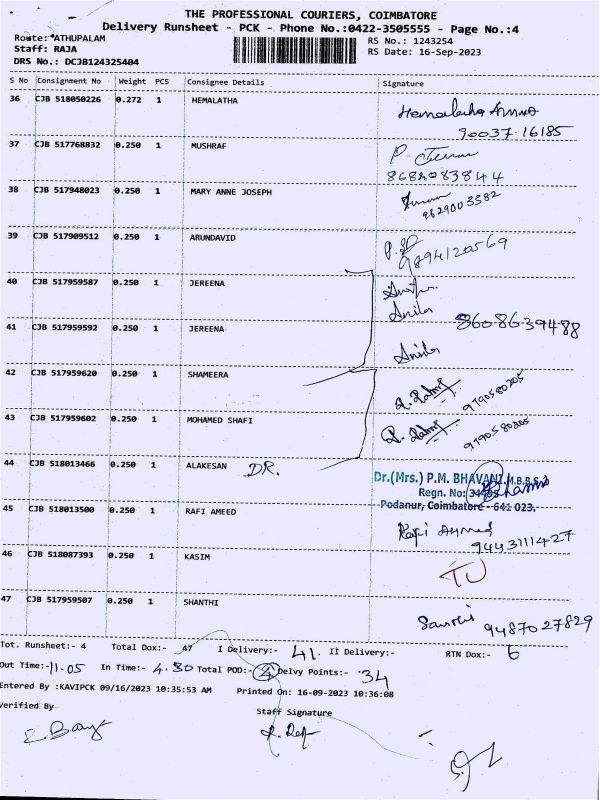 THE PROFESSIONAL COURIERS, COIMBATORE
Delivery Runsheet - PCK - Phone No.:0422-3505555 - Page No.:4
Route: ATHUPALAM
RS No.: 1243254
Staff: RAJA
RS Date: 16-Sep-2023
DRS No.: DCJB124325404
S No Consignment No Weight PCS Consignee Details Signature
36 CJB 518050226 0.272 1 HEMALATHA
90037 16185
37 CJB 517768832 0.250 1 MUSHRAF
8682083844
38 CJB 517948023 0.250 1 MARY ANNE JOSEPH
9629003382
39 CJB 517909512 0.250 1 ARUNDAVID
9894120569
40 CJB 517959587 0.250 1 JEREENA
Anila
8608639488
41 CJB 517959592 0.250 1 JEREENA
Anila
42 CJB 517959620 0.250 1 SHAMEERA
9790580205
43 CJB 517959602 0.250 1 MOHAMED SHAFI
9790580205
44 CJB 518013466 0.250 1 ALAKESAN DR.
Dr.(Mrs.) P.M. BHAVANI, M.B.B.S.,
Regn. No:
Podanur, Coimbatore - 641 023.
45 CJB 518013500 0.250 1 RAFI AMEED
Rafi Ahmed
9443111427
46 CJB 518087393 0.250 1 KASIM
TU
47 CJB 517959507 0.250 1 SHANTHI
9487027829
Tot. Runsheet:- 4 Total Dox:- 47 I Delivery:- 41. II Delivery:- RTN Dox:- 6
Out Time:- 11.05 In Time:- 4.30 Total POD:- 4 Delvy Points:- 34
Entered By :KAVIPCK 09/16/2023 10:35:53 AM Printed On: 16-09-2023 10:36:08
Verified By
Staff Signature